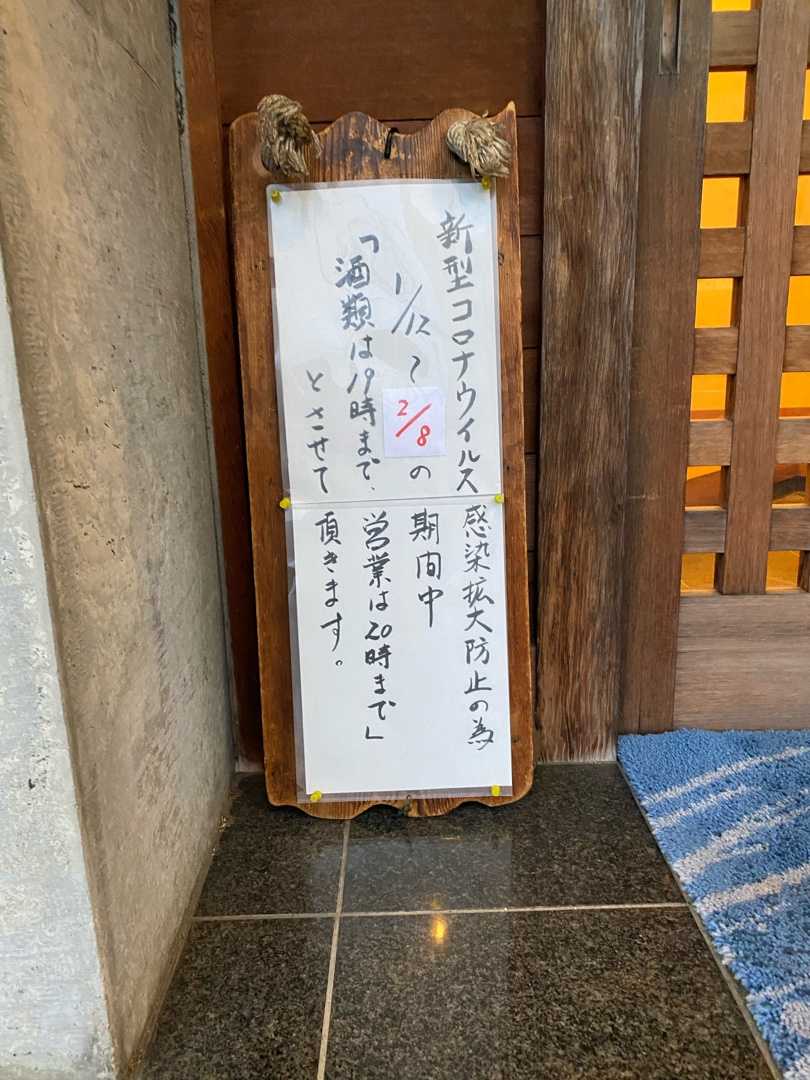 新型コロナウイルス感染拡大防止の為
1/12〜2/8の期間中
「酒類は19時まで、営業は20時まで」
とさせて頂きます。